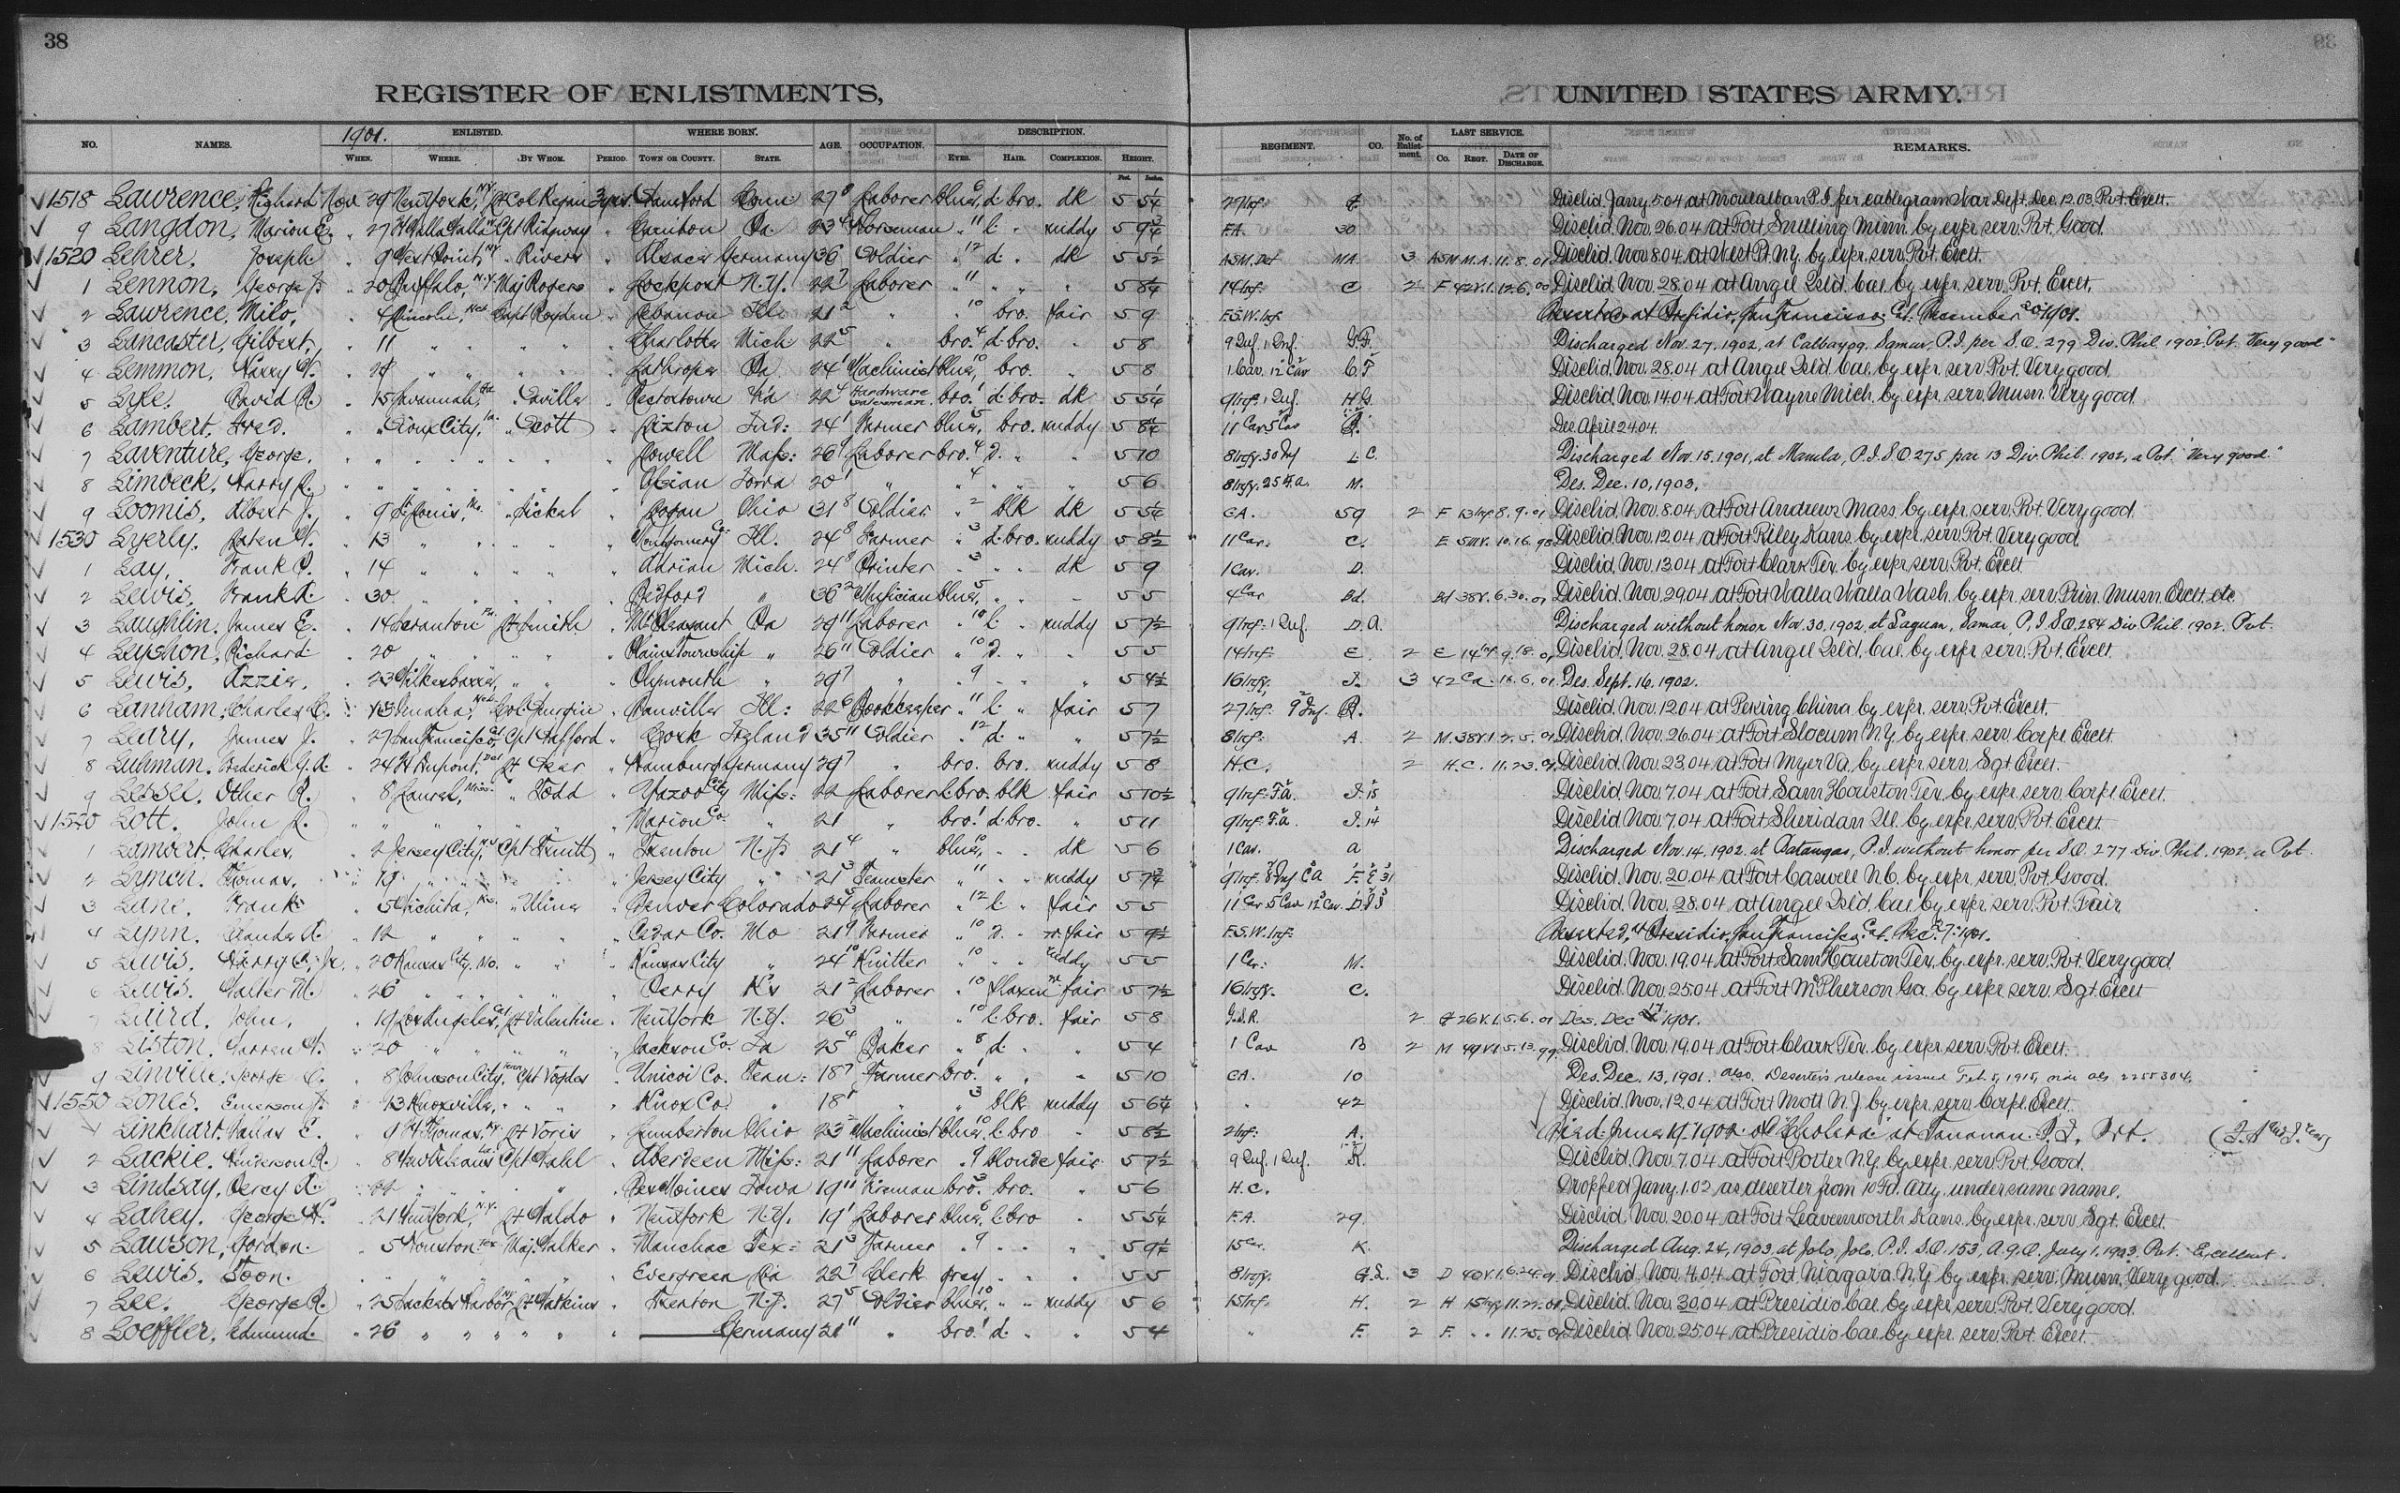 38
REGISTER OF ENLISTMENTS, UNITED STATES ARMY.
NO. NAMES. 1901. ENLISTED. WHERE BORN. AGE. OCCUPATION. DESCRIPTION. REGIMENT. CO. No. of Enlistment. LAST SERVICE. REMARKS.
WHEN. WHERE. BY WHOM. PERIOD. TOWN OR COUNTY. STATE. EYES. HAIR. COMPLEXION. HEIGHT. CO. REGT. DATE OF DISCHARGE.
Feet. Inches.
1518 Lawrence, Richard Nov 29 New York, N.Y. Stamford Conn 27 Laborer blue d. bro. dk 5 5¼ 27 Inf. Disch'd Jan'y 5.04 at Montalban P.I. per cablegram War Dept. Dec. 12.03 Pvt. Excel't.
9 Langdon, Marion E. " 27 Ft Walla Walla Cpt Ridgway " Pa. 23 Horseman " l. " ruddy 5 9¾ F.A. 30 Disch'd. Nov. 26.04 at Fort Snelling Minn. by exp. serv. Pvt. Good.
1520 Lehrer, Joseph " 9 West Point, N.Y. " Rivers " Alsace Germany 36 Soldier " d. " dk 5 5½ M.A. 3 11.8.01 Disch'd. Nov 8.04 at West Pt. N.Y. by exp. serv. Pvt. Excel't.
1 Lennon, George J. " 20 Buffalo, N.Y. Maj Rogers " Lockport N.Y. 22 Laborer " " " " 5 8¼ 14 Inf. C 2 F 42 V.I. 12.6.00 Disch'd. Nov. 28.04 at Angel Isl'd. Cal. by exp. serv. Pvt. Excel't.
2 Lawrence, Milo, " 4 Lincoln, Neb Capt Royden " Lebanon Ill. 21 " " bro. fair 5 9 F.S.W. Inf. Deserted at Presidio, San Francisco, Cal. December 20, 1901.
3 Lancaster, Gilbert, " 11 " " " Charlotte Mich 22 " bro. d. bro. " 5 8 9 Inf. 1 Inf. Discharged Nov. 27, 1902, at Calbayog, Samar, P.I. per S.O. 279 Div. Phil. 1902, Pvt. "Very good"
4 Lemmon, Harry W. " 29 " " " Lathrope Pa 24 Machinist blue, bro. " 5 8 1 Cav. 12 Cav C. F Disch'd. Nov. 28.04 at Angel Isl'd. Cal. by exp. serv. Pvt. Very good.
5 Lyle, David R. " 15 Savannah, Ga " Saville " Rectortown Va 22 Hardware salesman bro. d. bro. dk 5 5¼ 9 Inf. 1 Inf. H.G. Disch'd. Nov. 14.04 at Fort Wayne Mich. by exp. serv. Musn. Very good.
6 Lambert, Fred. " " Sioux City, Ia. " Scott " Lizton Ind: 24 Farmer blue, bro. ruddy 5 8¼ 11 Cav 5 Cav Des. April 24.04.
7 Laventure, George. " " " " " Lowell Mass: 26 Laborer bro. d. " " 5 10 8 Inf. 30 Inf L C. Discharged Nov. 15, 1901, at Manila, P.I. S.O. 275 par 13 Div. Phil. 1902, a Pvt. "Very good"
8 Limbeck, Harry R. " " " " " Albian Iowa 20 " " " " " 5 6 8 Inf. 25 F.A. M. Des. Dec. 10, 1903.
9 Loomis, Albert J. " 9 St Louis, Mo. " Sickel " Logan Ohio 31 Soldier " blk dk 5 5¼ C.A. 59 2 F 13 Inf 8.9.01 Disch'd. Nov. 8.04 at Fort Andrews Mass by exp. serv. Pvt. Very good.
1530 Lyerly, Loten W. " 13 " " " Montgomery Co. Ill. 24 Farmer " d. bro. ruddy 5 8½ 11 Cav. C. E 5 Ill V. 10.16.98 Disch'd. Nov. 12.04 at Fort Riley Kans. by exp. serv. Pvt. Very good.
1 Lay, Frank P. " 14 " " " Adrian Mich. 24 Printer " " " dk 5 9 1 Cav. D. Disch'd. Nov. 13.04 at Fort Clark Tex. by exp. serv. Pvt. Excel't
2 Lewis, Frank A. " 30 " " " Bedford " 36 Musician blue, " " " 5 5 4 Cav Bd. Bd 38 V. 6.30.01 Disch'd. Nov. 29.04 at Fort Walla Walla Wash. by exp. serv. Prin. Musn. Excel't. etc
3 Laughlin, James E. " 14 Scranton Pa. Lt Smith " Mt Pleasant Pa 29 Laborer " l. " ruddy 5 7½ 9 Inf. 1 Inf. D. A. Discharged without honor Nov. 30, 1902, at Laguan, Samar, P.I. S.O. 284 Div. Phil. 1902. Pvt.
4 Leyshon, Richard " 20 " " " Plains Township " 26 Soldier " d. " " 5 5 14 Inf. E. 2 E 14 Inf 9.18.01 Disch'd. Nov. 28.04 at Angel Isl'd. Cal. by exp. serv. Pvt. Excel't
5 Lewis, Azzia. " 23 Wilkesbarre, " " " Plymouth " 29 " " " " " 5 4½ 16 Inf. I. 3 42 Co. 16.6.01 Des. Sept. 16, 1902.
6 Lanham, Charles C. " 13 Omaha, Neb. Col. " Danville Ill: 22 Bookkeeper " l. " fair 5 7 27 Inf. 9 Inf. Disch'd. Nov. 12.04 at Peking China by exp. serv. Pvt. Excel't.
7 Leary, James J. " 27 San Francisco, Cal Cpt Safford " Cork Ireland 35 Soldier " d. " " 5 7½ 8 Inf. A. 2 M. 38 V.I. 2.5.01 Disch'd. Nov. 26.04 at Fort Slocum N.Y. by exp. serv. Corpl Excel't.
8 Luhman, Frederick G.A. " 24 Ft Dupont, Del Lt " Hamburg Germany 29 " bro. bro. ruddy 5 8 H.C. 2 H.C. 11.23.01 Disch'd. Nov. 23.04 at Fort Myer Va. by exp. serv. Sgt Excel't.
9 Lessel, Other R. " 8 Laurel, Miss. " Todd " Yazoo City Miss: 22 Laborer l. bro. blk fair 5 10½ 9 Inf. F.A. I. 15 Disch'd. Nov. 7.04 at Fort Sam Houston Tex. by exp. serv. Corpl. Excel't.
1540 Lott, John R. " " " " " Marion Co. " 21 " bro. d. bro. " 5 11 9 Inf. F.A. I. 14 Disch'd. Nov. 7.04 at Fort Sheridan Ill. by exp. serv. Pvt. Excel't
1 Lambert, Charles, " 2 Jersey City, N.J Cpt Truitt " Trenton N.J. 21 " blue, " " dk 5 6 1 Cav. a Discharged Nov. 14, 1902 at Batangas, P.I. without honor per S.O. 277 Div. Phil. 1902, a Pvt.
2 Lynch, Thomas, " 19 " " " Jersey City " 21 Teamster " " " ruddy 5 7¾ 9 Inf. 8 Inf C.A F. E 31 Disch'd. Nov. 20.04 at Fort Caswell N.C. by exp. serv. Pvt. Good.
3 Lane, Frank " 5 Wichita, Ks. " Uline " Denver Colorado 24 Laborer " l. " fair 5 5 11 Cav 5 Cav 12 Cav. Disch'd. Nov. 28.04 at Angel Isl'd. Cal. by exp. serv. Pvt. Fair
4 Lynn, Claude A. " 12 " " " Cedar Co. Mo 21 Farmer " d. " fair 5 9½ F.S.W. Inf. Deserted, at Presidio, San Francisco, Cal. Dec. 7, 1901.
5 Lewis, Harry C. Jr. " 20 Kansas City, Mo. " " Kansas City " 24 Knitter " " " ruddy 5 5 1 Cav. M. Disch'd. Nov. 19.04 at Fort Sam Houston Tex. by exp. serv. Pvt. Very good.
6 Lewis, Walter M. " 26 " " " Perry Ks 21 Laborer " flaxen fair 5 7½ 16 Inf. C. Disch'd. Nov. 25.04 at Fort McPherson Ga. by exp. serv. Sgt. Excel't
Laird, John, " 19 Los Angeles, Cal Lt Valentine " New York N.Y. 26 " " l. bro. fair 5 8 G.S.R. 2 26 V.I. 5.6.01 Des. Dec 1901.
8 Liston, Warren W. " 20 " " " Jackson Co. Ia 25 Baker " d. " " 5 4 1 Cav B 2 M 49 V.I. 5.13.99 Disch'd. Nov. 19.04 at Fort Clark Tex. by exp. serv. Pvt. Excel't.
9 Linville, George C. " 8 Johnson City, Tenn Cpt Vogdes " Unicoi Co. Tenn: 18 Farmer bro. " " " 5 10 C.A. 10 Des. Dec. 13, 1901. also, Deserter's release issued Feb. 5, 1915, vide 2255304.
1550 Lones, Emerson J. " 13 Knoxville, " " " Knox Co. " 18 " " blk ruddy 5 6¼ " 42 Disch'd. Nov. 12.04 at Fort Mott N.J. by exp. serv. Corpl. Excel't.
1 Linkhart, James E. " 9 Ft Thomas, Ky. Lt Voris " Lumberton Ohio 23 Machinist blue, l. bro " 5 8½ 2 Inf. A. Died June 19, 1902 of Cholera at Tananan, P.I. Pvt.
2 Lackie, Henderson R. " 8 New Orleans La Cpt Dahl " Aberdeen Miss: 21 Laborer " blonde fair 5 7½ 9 Inf. 1 Inf. Disch'd. Nov. 7.04 at Fort Porter N.Y. by exp. serv. Pvt. Good.
3 Lindsay, Percy A. " 22 " " " Des Moines Iowa 19 Fireman bro. bro. " 5 6 H.C. Dropped Jan'y. 1.02 as deserter from 10 F'd. Art'y. under same name.
4 Lahey, George W. " 21 New York, N.Y. Lt Waldo " New York N.Y. 19 Laborer blue, l. bro " 5 5¼ F.A. 29. Disch'd. Nov. 20.04 at Fort Leavenworth Kans. by exp. serv. Sgt. Excel't.
5 Lawson, Gordon. " 5 Houston Tex Maj. Walker " Manchac Tex: 21 Farmer " " " " 5 9½ 15 Cav. K. Discharged Aug. 24, 1903, at Jolo, Jolo, P.I. S.O. 153, A.G.O. July 1, 1903. Pvt. Excellent.
6 Lewis, Toon. " " " " " Evergreen La 22 Clerk grey " " " 5 5 8 Inf. G.L. 3 D 40 V.I. 6.24.01 Disch'd. Nov. 4.04 at Fort Niagara N.Y. by exp. serv. Musn. Very good.
7 Lee, George R. " 25 Sackets Harbor, N.Y. Lt Watkins " Trenton N.J. 27 Soldier blue, " " ruddy 5 6 15 Inf. H. 2 H 15 Inf 11.22.01 Disch'd. Nov. 30.04 at Presidio Cal. by exp. serv. Pvt. Very good.
8 Loeffler, Edmund. " 26 " " " " " Germany 21 " bro. d. " " 5 4 " F. 2 F. " " 11.25.01 Disch'd. Nov. 25.04 at Presidio Cal. by exp. serv. Pvt. Excel't.